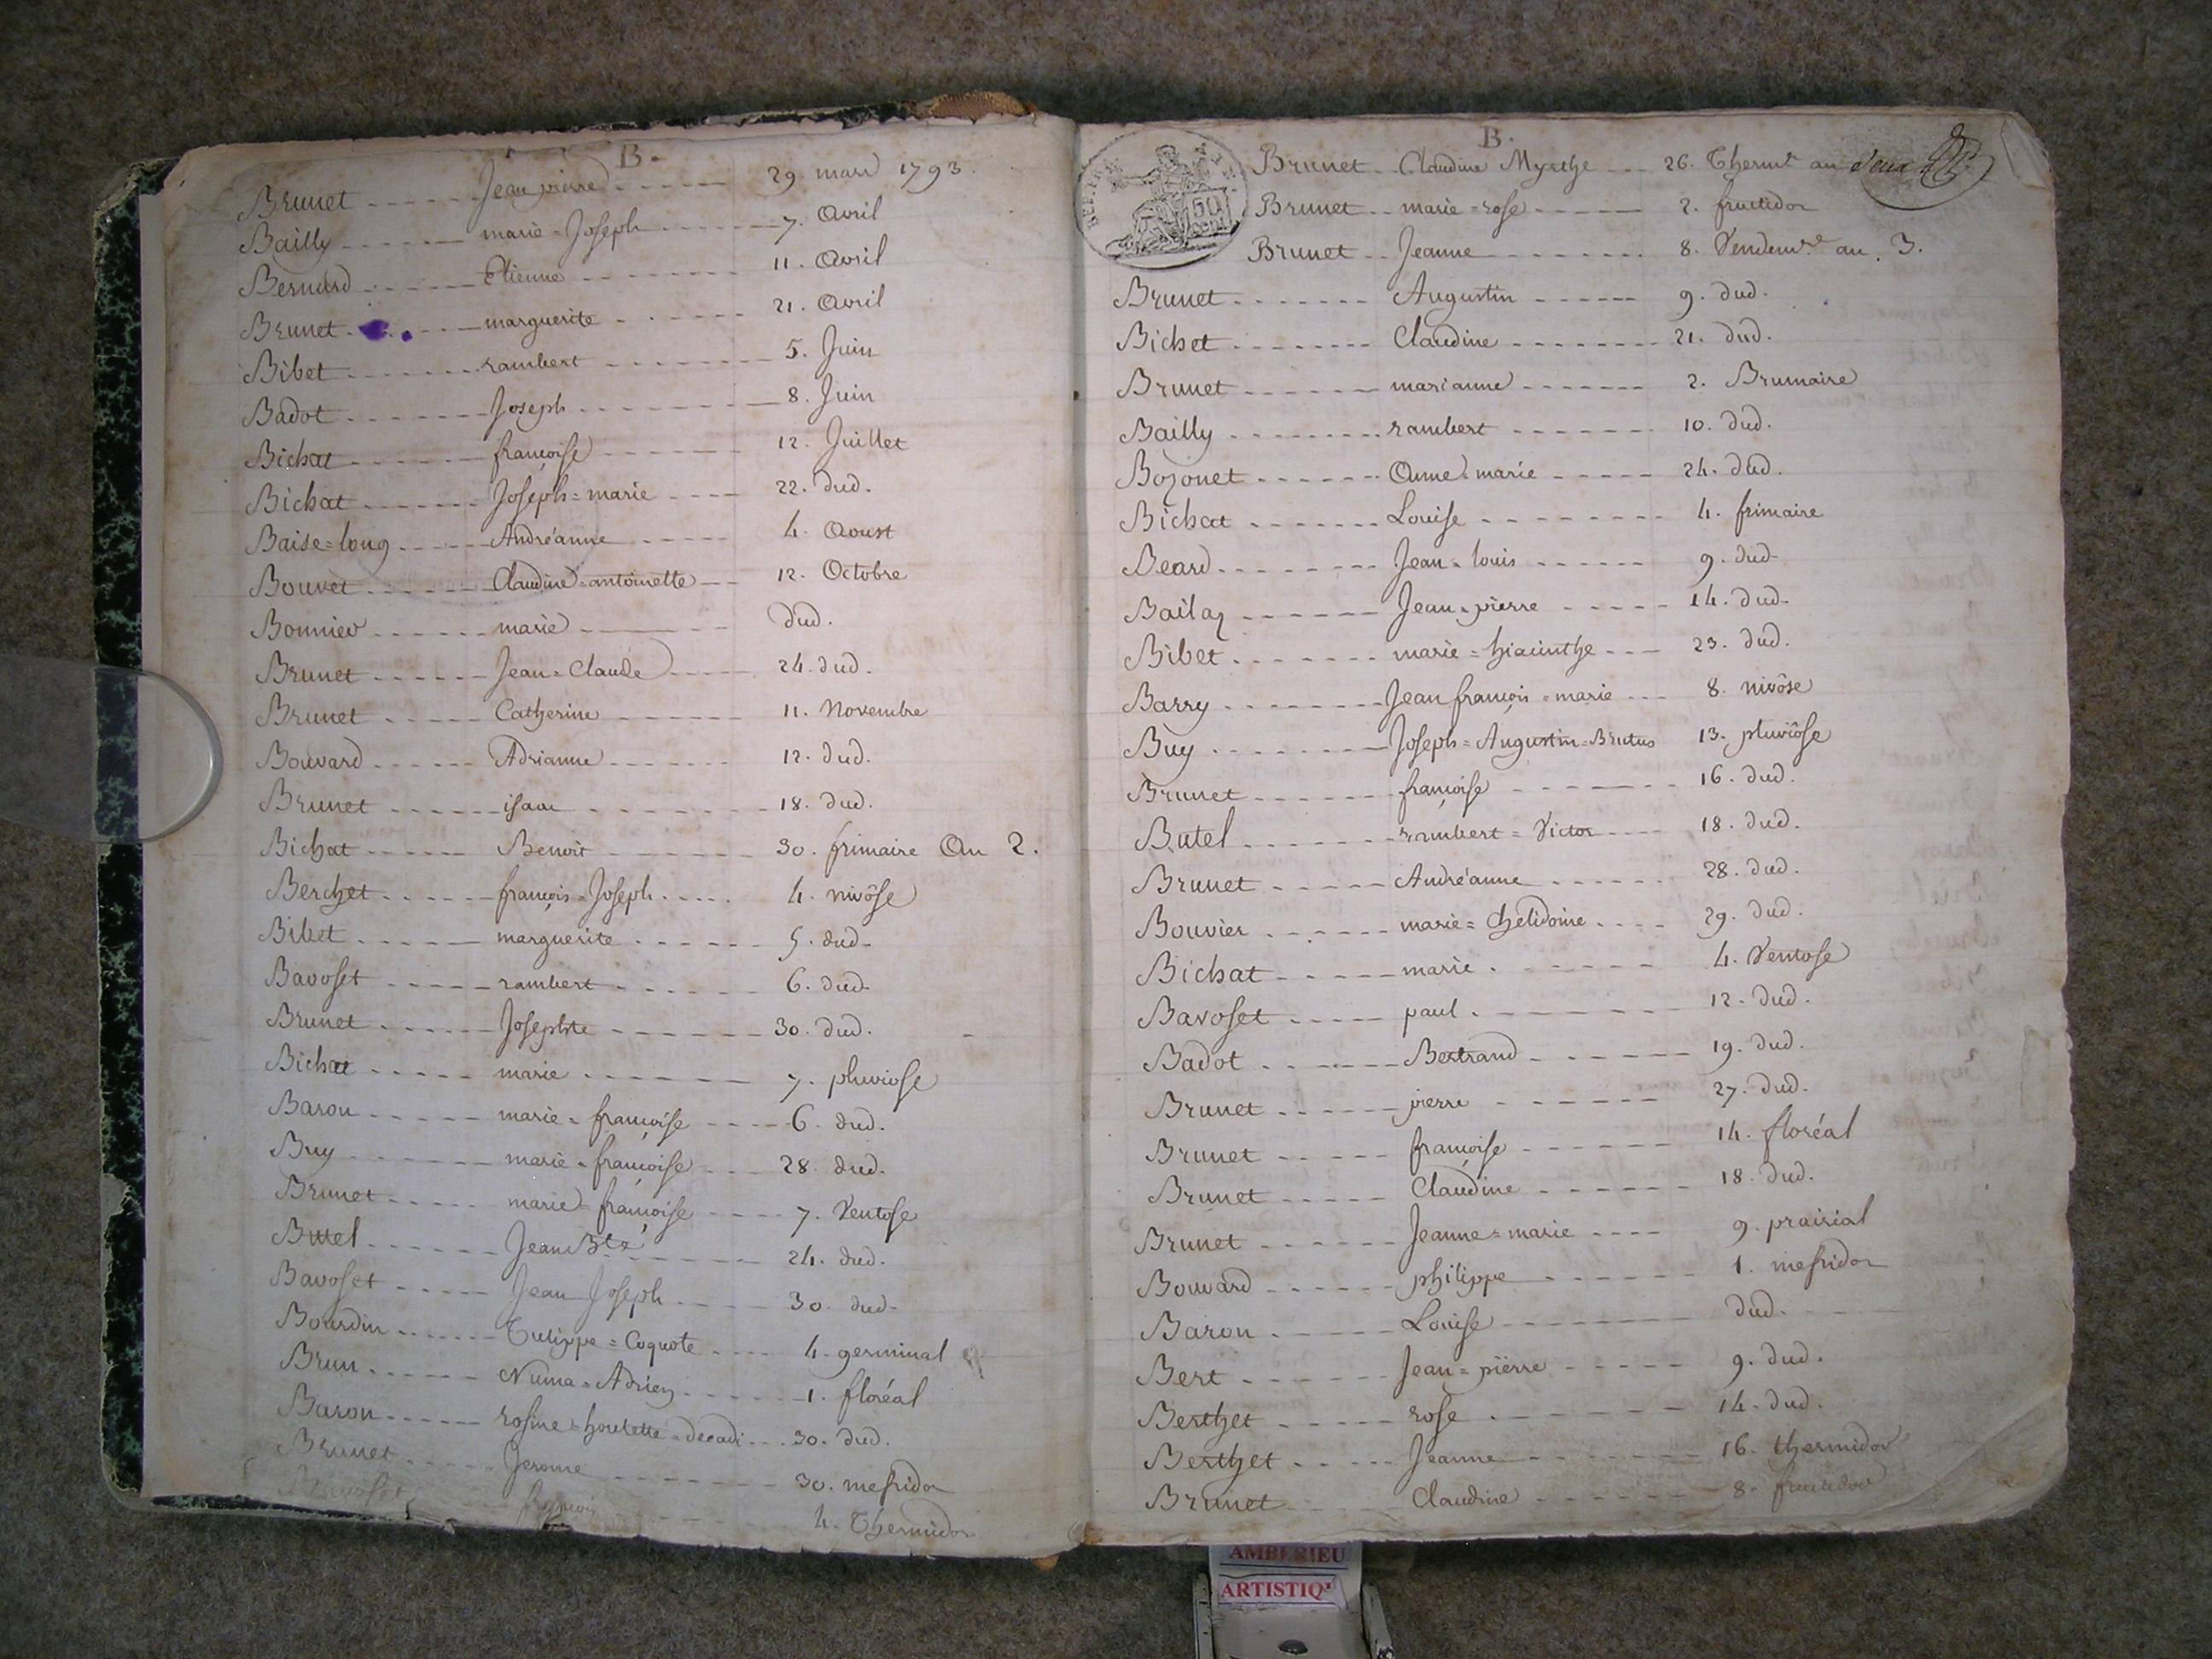 B.
Brunet Jean pierre 29. mars 1793.
Bailly marie=Joseph 7. Avril
Bernard Etienne 11. Avril
Brunet marguerite 21. Avril
Bibet rambert 5. Juin
Badot Joseph 8. Juin
Bichat françoise 12. Juillet
Bichat Joseph=marie 22. dud.
Baise=long Andréanne 4. Aoust
Bouvet Claudine=antoinette 12. Octobre
Bonnier marie dud.
Brunet Jean=Claude 24. dud.
Brunet Catherine 11. Novembre
Bouvard Adrianne 12. dud.
Brunet isaac 18. dud.
Bichat Benoit 30. frimaire An 2.
Berchet françois=Joseph 4. nivôse
Bibet marguerite 5. dud.
Bavoset rambert 6. dud.
Brunet Josephte 30. dud.
Bichat marie 7. pluviose
Baron marie=françoise 6. dud.
Buy marie=françoise 28. dud.
Brunet marie=françoise 7. Ventose
Butel Jean Bte 24. dud.
Bavoset Jean Joseph 30. dud.
Bourdin Tulippe=Coquote 4. germinal
Brun Numa=Adrien 1. floréal
Baron rosine=houlette=decadi 30. dud.
Brunet Jerome 30. messidor
Bavoset françois 4. Thermidor
B.
Brunet Claudine Myrthe 26. Thermr an deux
Brunet marie=rose 2. fructidor
Brunet Jeanne 8. Vendemre an. 3.
Brunet Augustin 9. dud.
Bichet Claudine 21. dud.
Brunet marianne 2. Brumaire
Bailly rambert 10. dud.
Bozonet Anne=marie 24. dud.
Bichat Louise 4. frimaire
Beard Jean=louis 9. dud
Bailaz Jean=pierre 14. dud.
Bibet marie=hiacinthe 23. dud.
Barry Jean françois=marie 8. nivôse
Buy Joseph=Augustin=Brutus 13. pluviôse
Brunet françoise 16. dud.
Butel rambert=Victor 18. dud.
Brunet Andréanne 28. dud.
Bouvier marie=chelidoine 29. dud.
Bichat marie 4. Ventose
Bavoset paul 12. dud.
Badot Bertrand 19. dud.
Brunet pierre 27. dud.
Brunet françoise 14. floréal
Brunet Claudine 18. dud.
Brunet Jeanne=marie 9. prairial
Bouvard philippe 1. messidor
Baron Louise dud.
Bert Jean=pierre 9. dud.
Berthet rose 14. dud.
Berthet Jeanne 16. thermidor
Brunet Claudine 8. fructidor
AMBERIEU
ARTISTIQ